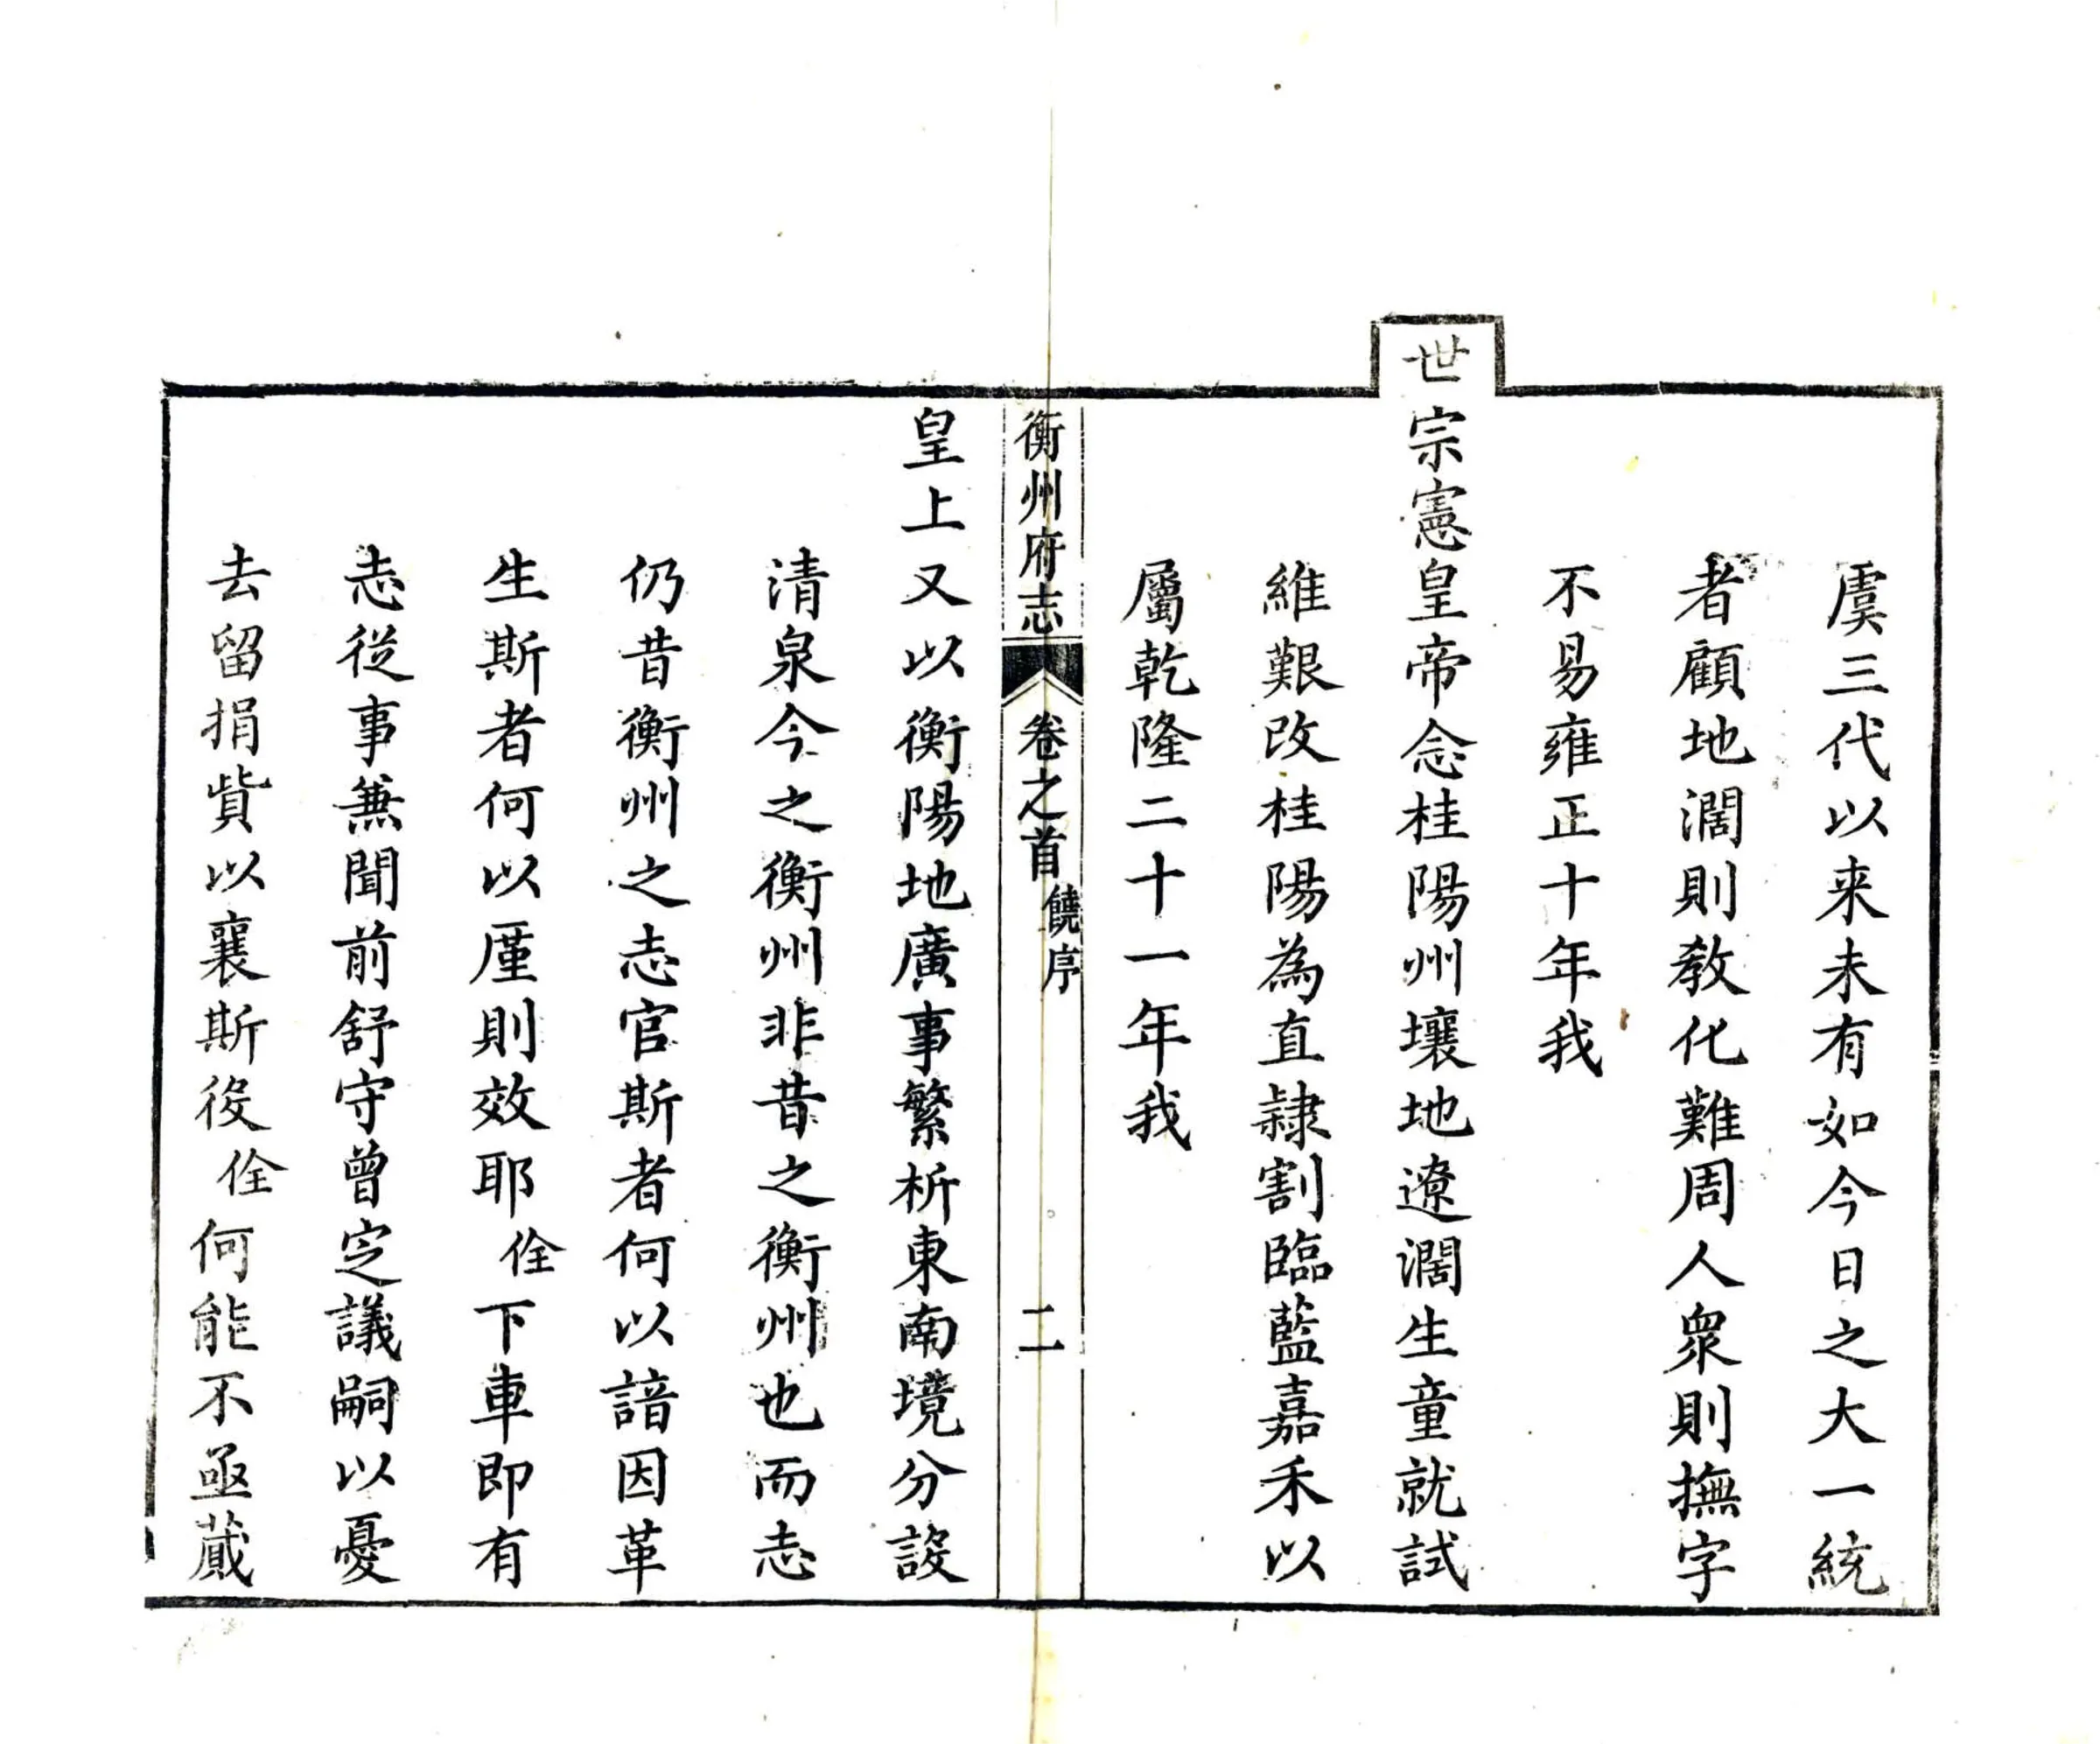 虞三代以来未有如今日之大一統
者顧地濶則教化難周人衆則撫字
不易雍正十年我
世宗憲皇帝念桂陽州壤地遼濶生童就試
維艱改桂陽為直隷割臨藍嘉禾以
屬乾隆二十一年我
衡州府志 卷之首 饒序 二
皇上又以衡陽地廣事繁析東南境分設
清泉今之衡州非昔之衡州也而志
仍昔衡州之志官斯者何以諳因革
生斯者何以厪則效耶佺下車即有
志從事兼聞前舒守曾定議嗣以憂
去留捐貲以襄斯役佺何能不亟蕆